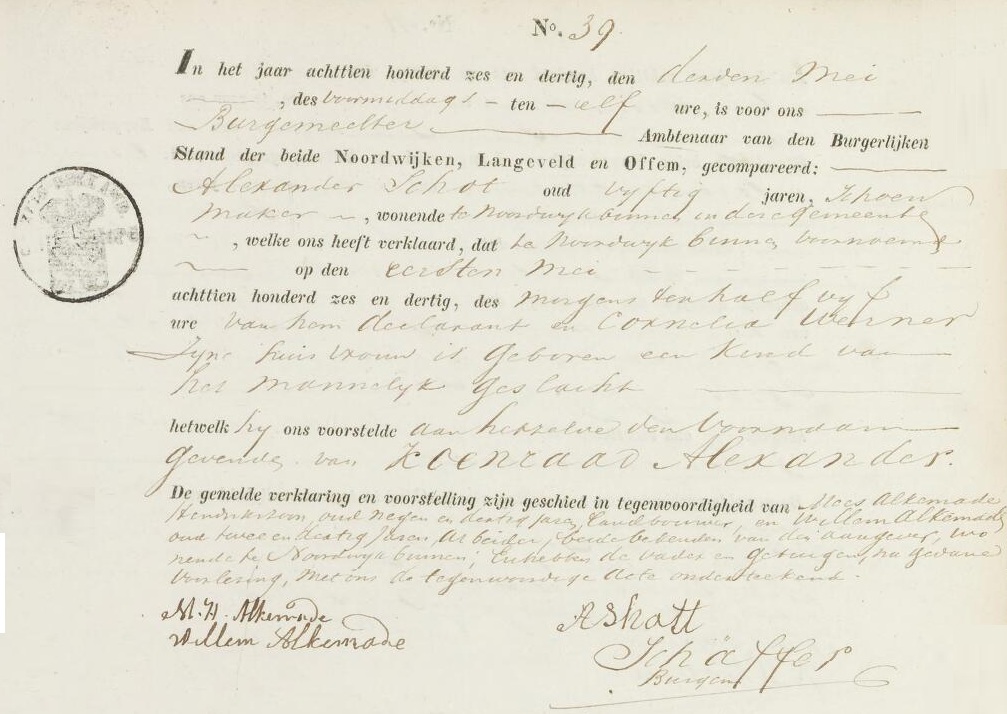 No. 39.
In het jaar achttien honderd zes en dertig, den derden Mei
, des voormiddags - ten - elf ure, is voor ons
Burgemeester Ambtenaar van den Burgerlijken
Stand der beide Noordwijken, Langeveld en Offem, gecompareerd:
Alexander Schot oud vyftig jaren, Schoen
maker , wonende te Noordwyk binnen in dese gemeente
, welke ons heeft verklaard, dat te Noordwyk binnen voornoemd
op den eersten Mei
achttien honderd zes en dertig, des morgens ten half vyf
ure van hem declarant en Cornelia Werner
zyne huisvrouw is geboren een kind van
het mannelyk geslacht
hetwelk hy ons voorstelde aan hetzelve den voornaam
gevende van Koenraad Alexander.
De gemelde verklaring en voorstelling zijn geschied in tegenwoordigheid van Mees Alkemade
Hendrikszoon, oud negen en dertig jaren, Landbouwer, en Willem Alkemade
oud twee en dertig jaren, beide bekenden van den aangever, wo
nende te Noordwyk binnen; En hebben de vader en getuigen, na gedane
voorlesing, met ons de tegenwoordige acte onderteekend.
M. H. Alkemade
Willem Alkemade
A Shott
Schäffer
Burgem